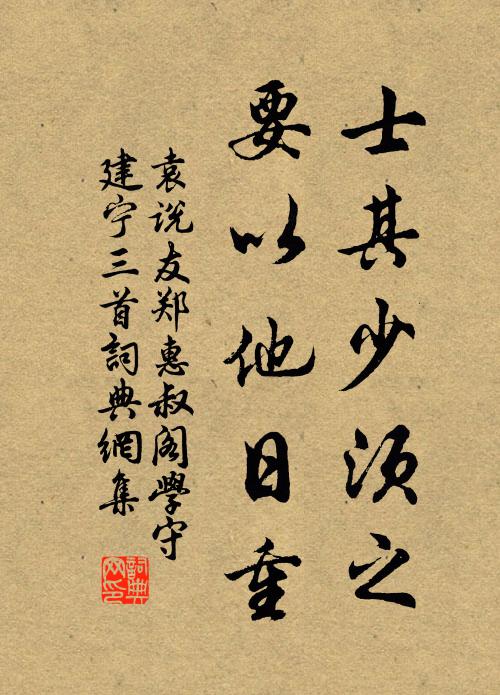 士其少须之
要以他日重
袁说友郑惠叔阁學守
建宁三首詞典網集
詞典
网印